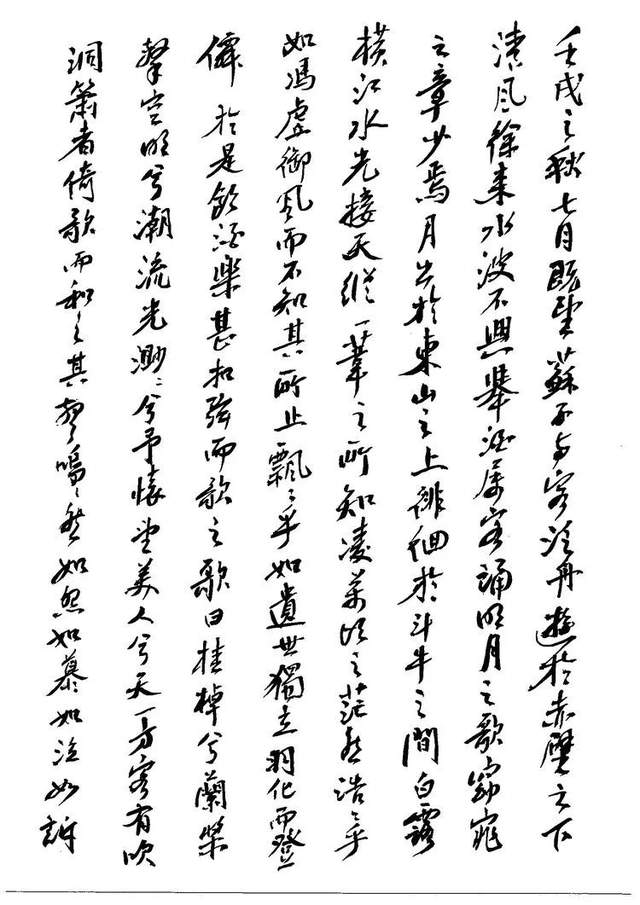 壬戌之秋七月既望蘇子与客泛舟遊於赤壁之下
清风徐来水波不興舉酒属客誦明月之歌窈窕
之章少焉月出於東山之上徘徊於斗牛之間白露
横江水光接天縱一葦之所知凌萬頃之茫然浩〻乎
如馮虛御风而不知其所止飄〻乎如遺世獨立羽化而登
僊 於是飲酒樂甚扣弦而歌之歌曰桂棹兮蘭槳
擊空明兮潮流光渺〻兮予懷望美人兮天一方客有吹
洞簫者倚歌而和之其聲嗚〻然如怨如慕如泣如訴